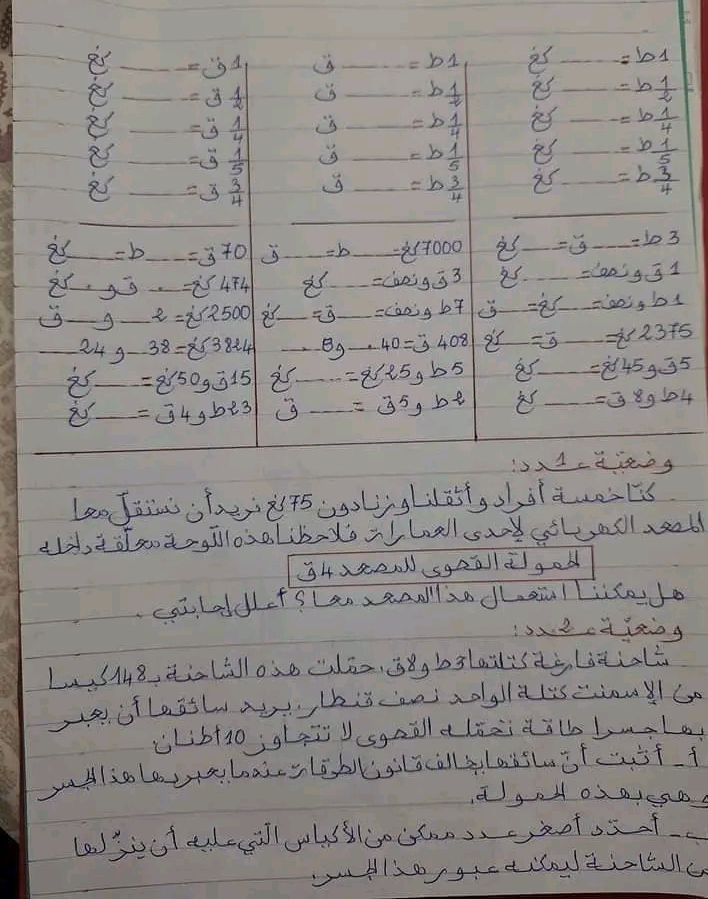 1ط= ____ كغ
1ط= ____ ق
1ق= ____ كغ
1/2 ط= ____ كغ
1/2 ط= ____ ق
1/2 ق= ____ كغ
1/4 ط= ____ كغ
1/4 ط= ____ ق
1/4 ق= ____ كغ
1/5 ط= ____ كغ
1/5 ط= ____ ق
1/5 ق= ____ كغ
3/4 ط= ____ كغ
3/4 ط= ____ ق
3/4 ق= ____ كغ
3ط= ____ ق= ____ كغ
7000كغ= ____ ط= ____ ق
70ق= ____ ط= ____ كغ
1ق ونصف= ____ كغ
3ق ونصف= ____ كغ
474كغ= ____ ق و ____ كغ
1ط ونصف= ____ كغ= ____ ق
7ط ونصف= ____ ق= ____ كغ
2500كغ= 2 ____ و ____ ق
2375كغ= ____ ق= ____ كغ
408ق= 40 ____ و8 ____
3824كغ= 38 ____ و 24 ____
5ق و45كغ= ____ كغ
5ط و25كغ= ____ كغ
15ق و50كغ= ____ كغ
4ط و8ق= ____ كغ
2ط و5ق = ____ ق
23ط و4ق = ____ كغ
وضعيّة عـ1ـدد:
كنّا خمسة أفراد وأثقلنا وزنا دون 75كغ نريد أن نستقلّ معا
المصعد الكهربائي لإحدى العمارات فلاحظنا هذه اللّوحة معلّقة داخله
الحمولة القصوى للمصعد 4ق
هل يمكننا استعمال هذا المصعد معا؟ أعلل إجابتي.
وضعيّة عـ2ـدد:
شاحنة فارغة كتلتها 3ط و8ق، حمّلت هذه الشاحنة بـ148كيسا
من الإسمنت كتلة الواحد نصف قنطار. يريد سائقها أن يعبر
بها جسرا طاقة تحمّله القصوى لا تتجاوز 10أطنان
أ- أثبت أنّ سائقها يخالف قانون الطرقات عندما يعبر بها هذا الجسر
وهي بهذه الحمولة.
ب- أحدّد أصغر عدد ممكن من الأكياس الّتي عليه أن ينزّلها
من الشاحنة ليمكنه عبور هذا الجسر.